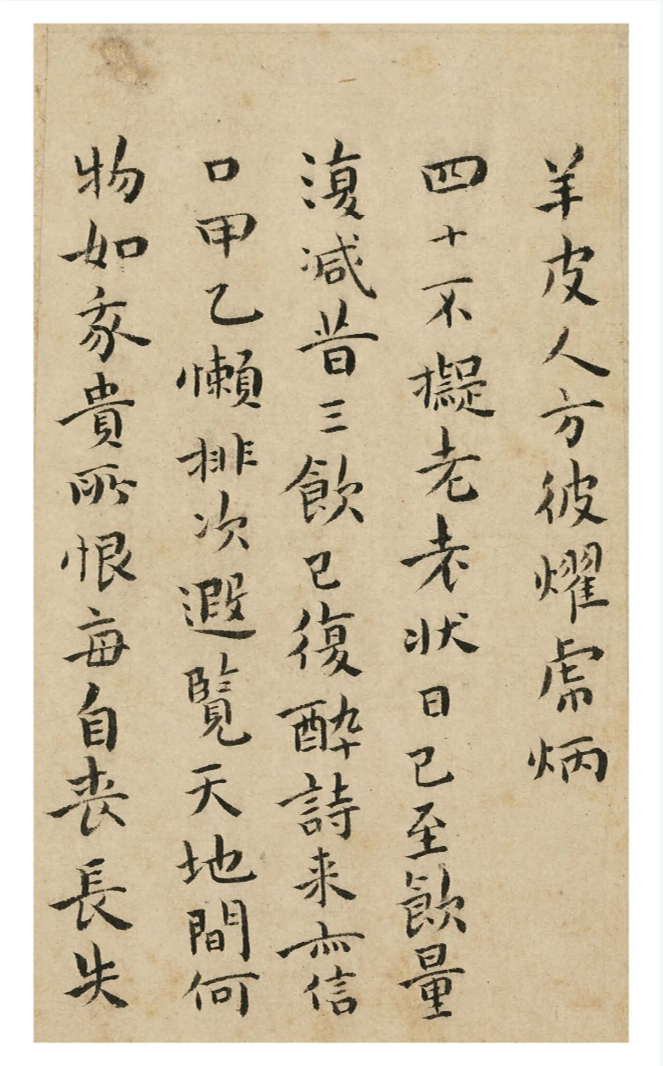 羊皮人方彼耀虎炳
四十不擬老老狀日已至飲量
復減昔三飲已復醉詩來亦信
口甲乙懶排次遐覽天地間何
物如我貴所恨每自喪長失